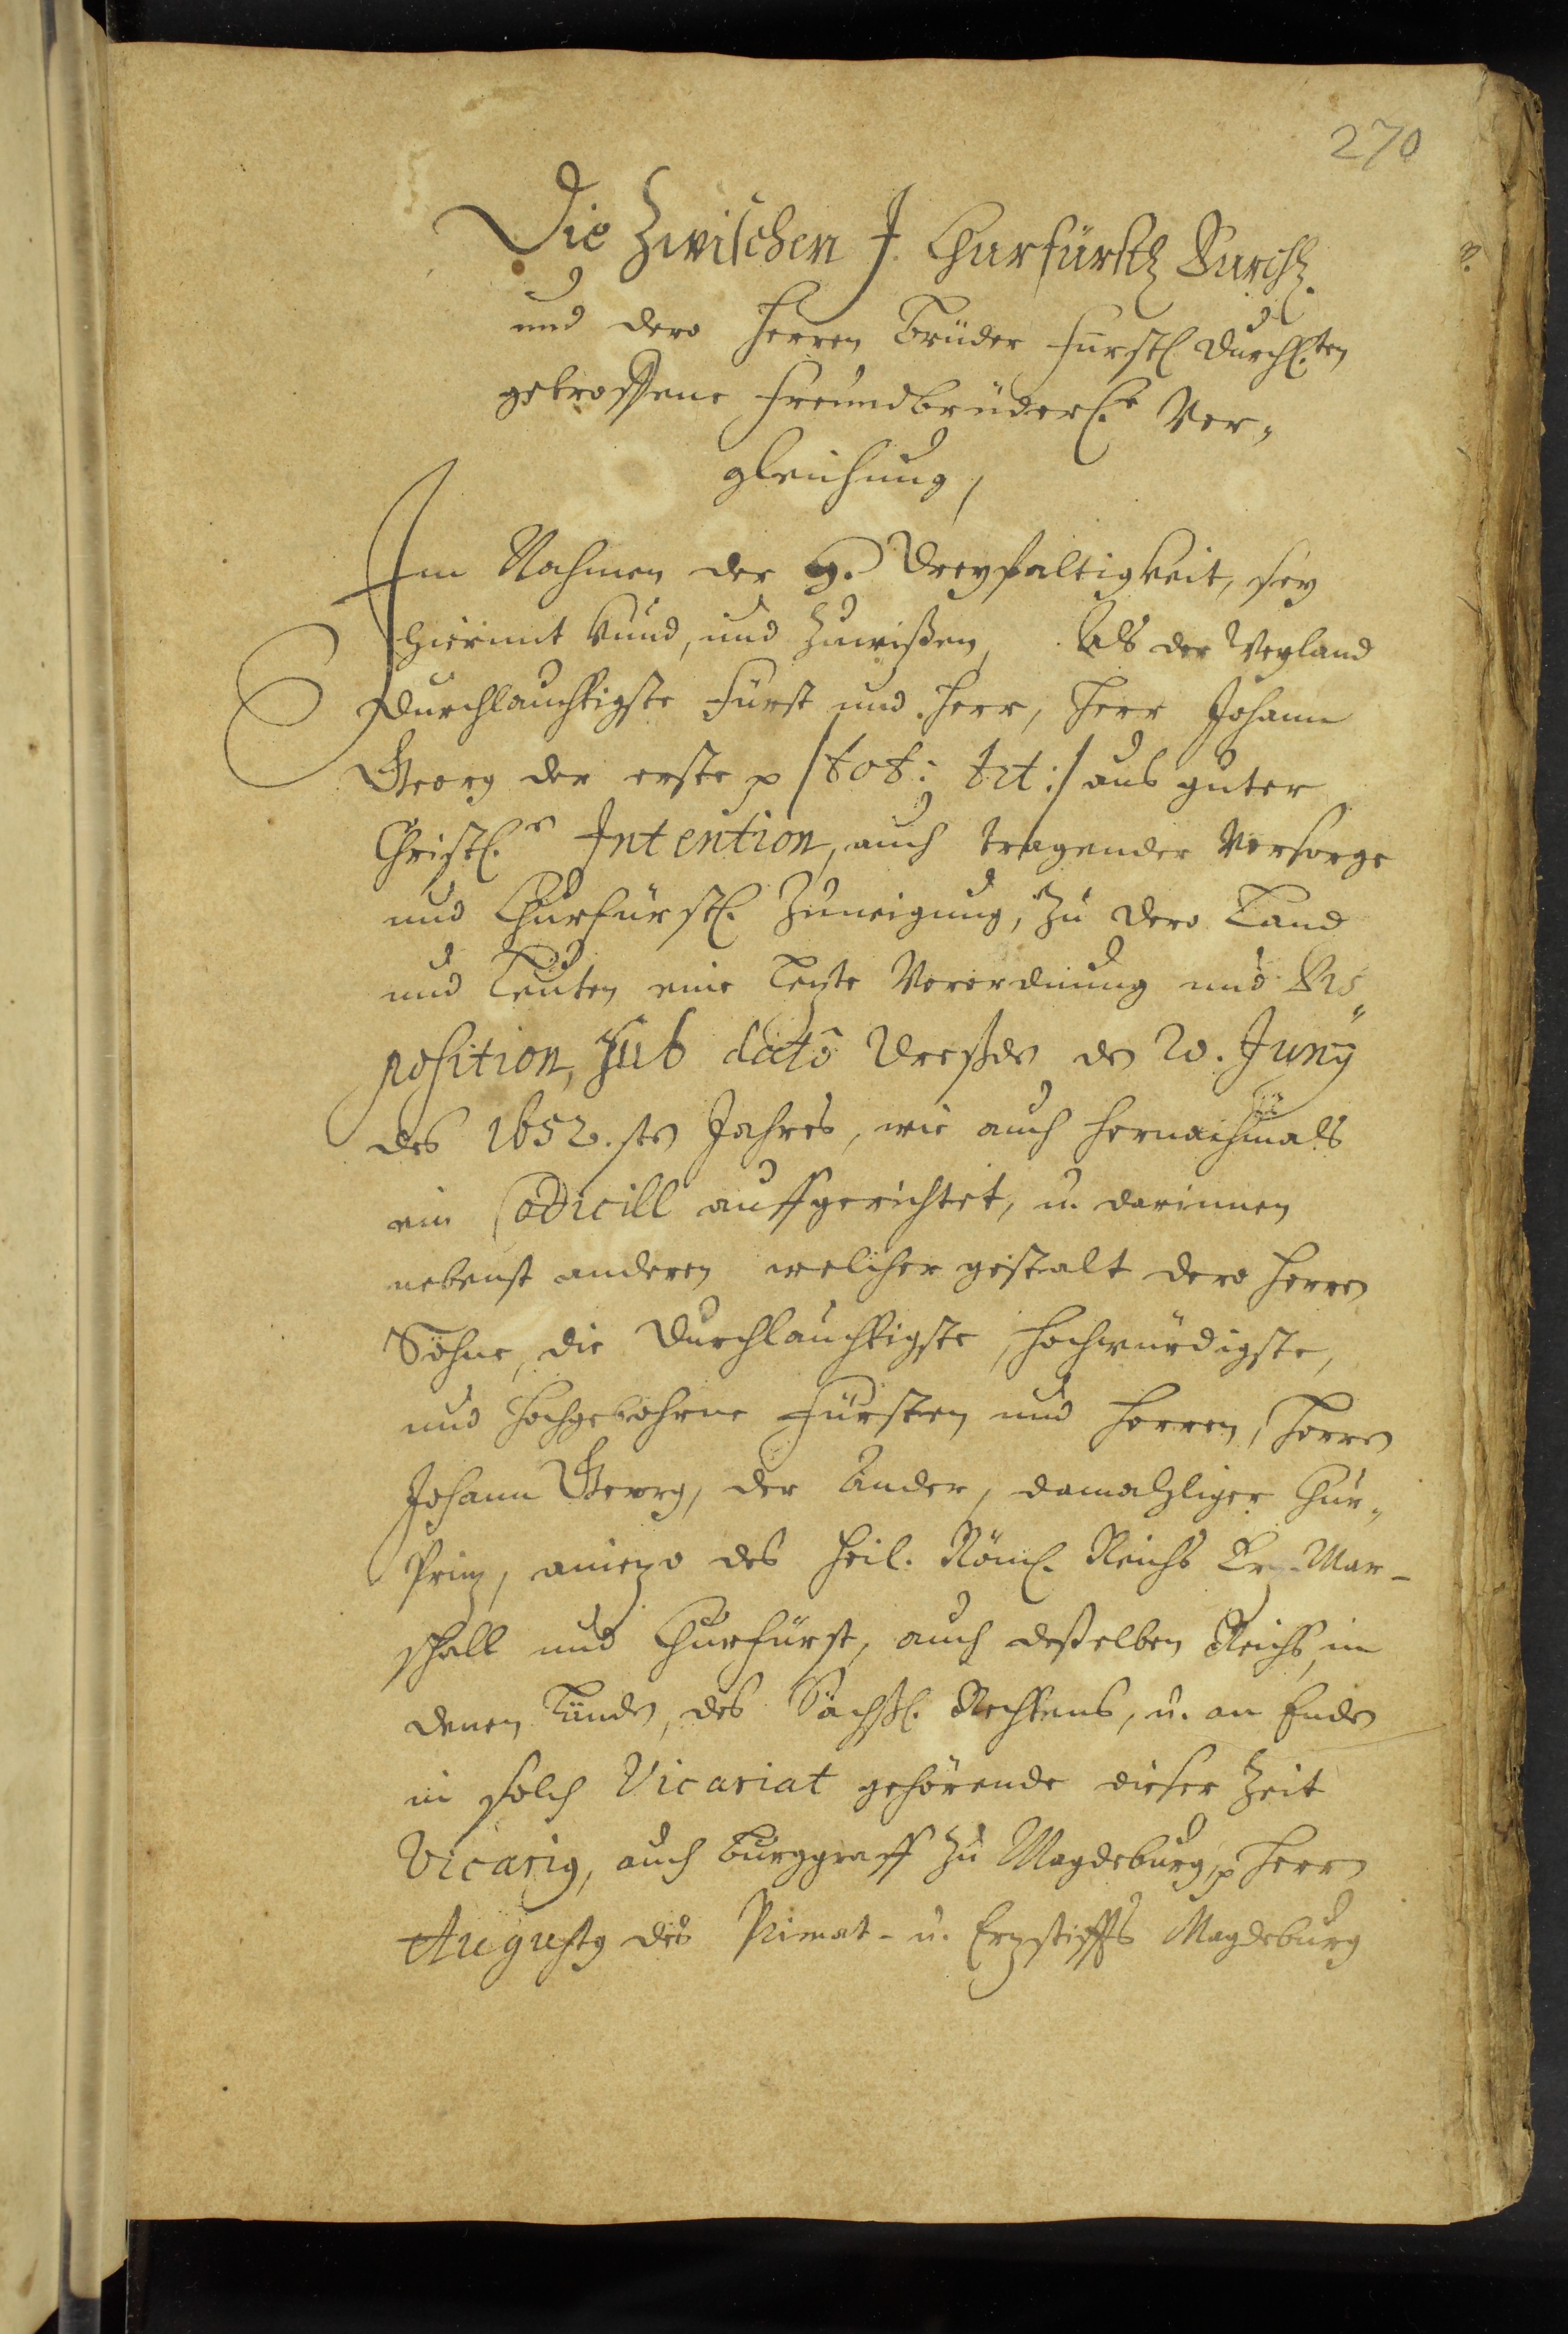 270
Die Zwischen J. Churfürstl Durchl.
und dero Herren Brüder Fürstl Durchl.ten
getroffene Freundbrüderl.e Ver„
gleichung,
Im Nahmen der H. Dreyfaltigkeit, sey
hiermit kund, und zuwißen, Als der Weyland
Durchlauchtigste Fürst und Herr, Herr Johann
Georg der erste p /tot: tit:/ aus guter
Christl.r Intention, auch tragender Vorsorge
und Churfürstl. Zuneigung, zu dero Land
und Leuten eine Lezte Verordnung und Dis„
position, sub dato Dreßden den 20. Junÿ
des 1652.sten Jahres, wie auch hernachmals
ein Codicill auffgerichtet, u. darinnen
nebenst anderen welicher gestalt dero Herren
Söhne, die Durchlauchtigste, Hochwürdigste,
und Hochgebohrne Fürsten und Herren, Herrn
Johann Georg, der Ander, damahliger Chur„
Prinz, aniezo des Heil. Röml. Reichs Erz-Mar-
schall und Churfürst, auch deßelben Reichs, in
denen Landen, des Sächßl. Rechtens, u. an Enden
in solch Vicariat gehörende dieser Zeit
Vicarig, auch Burggraff zu Magdeburg, p Herrn
Augustg des Primat- u. Erzstiffts Magdeburg